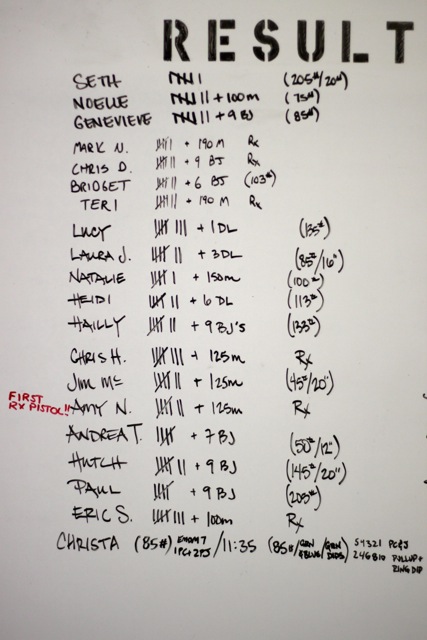 RESULT
SETH 𝍸 I (205#/20")
NOELLE 𝍸 II + 100m (75#)
GENEVIEVE 𝍸 II + 9 BJ (85#)
MARK N. 𝍸 I + 190 m Rx
CHRIS D. 𝍸 II + 9 BJ Rx
BRIDGET 𝍸 II + 6 BJ (103#)
TERI 𝍸 II + 190 m Rx
LUCY 𝍸 III + 1 DL (135#)
LAURA J. 𝍸 II + 3 DL (85#/16")
NATALIE 𝍸 I + 150m (100#)
HEIDI 𝍸 II + 6 DL (113#)
HAILLY 𝍸 II + 9 BJ's (133#)
CHRIS H. 𝍸 III + 125m Rx
JIM MC 𝍸 II + 125m (45#/20")
FIRST
RX PISTOL!! AMY N. 𝍸 II + 125m Rx
ANDREA T. 𝍸 + 7 BJ (50#/12")
HUTCH 𝍸 II + 9 BJ (145#/20")
PAUL 𝍸 + 9 BJ (205#)
ERIC S. 𝍸 III + 100m Rx
CHRISTA (85#) 1PC+2PJ /11:35 (85#/GRN &BLUE/GRN DIPS) 54321 PC&J
246810 PULLUP+
RING DIP